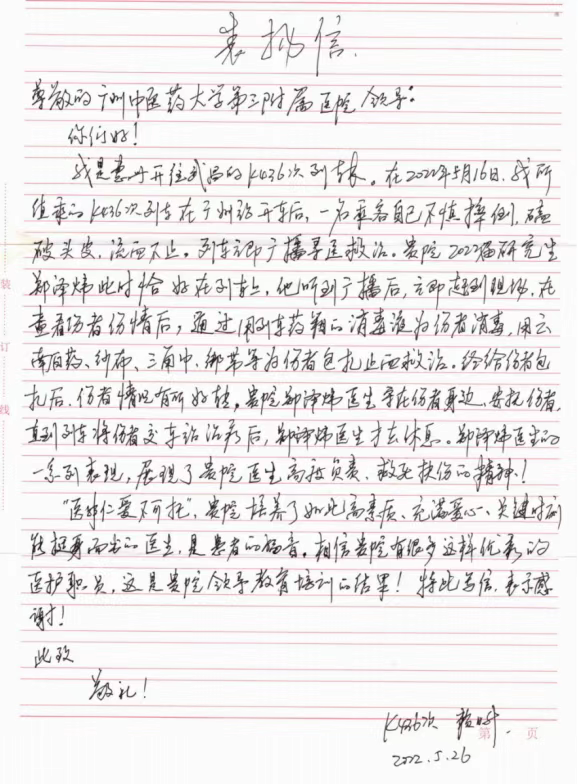 表扬信
尊敬的广州中医药大学第三附属医院领导:
你们好!
我是惠州开往武昌的K436次列车长。在2022年5月16日,我所
值乘的K436次列车在广州站开车后,一名乘客自己不慎摔倒,磕
破头皮,流血不止。列车立即广播寻医救治。贵院2022届研究生
郑泽炜此时恰好在列车上,他听到广播后,立即赶到现场,在
查看伤者伤情后,通过用列车药箱的消毒液为伤者消毒,用云
南白药、纱布、三角巾、绑带等为伤者包扎止血救治。经给伤者包
扎后,伤者情况有所好转。贵院郑泽炜医生守在伤者身边、安抚伤者,
直到列车将伤者交车站治疗后,郑泽炜医生才去休息。郑泽炜医生的
一系列表现,展现了贵院医生高度负责、救死扶伤的精神!
“医者仁爱不可托”,贵院培养了如此高素质、充满爱心、关键时刻
能挺身而出的医生,是患者的福音。相信贵院有很多这样优秀的
医护职员,这是贵院领导教育培训的结果!特此写信,表示感
谢!
此致
敬礼!
K436次
2022.5.26
第 页
装
订
线